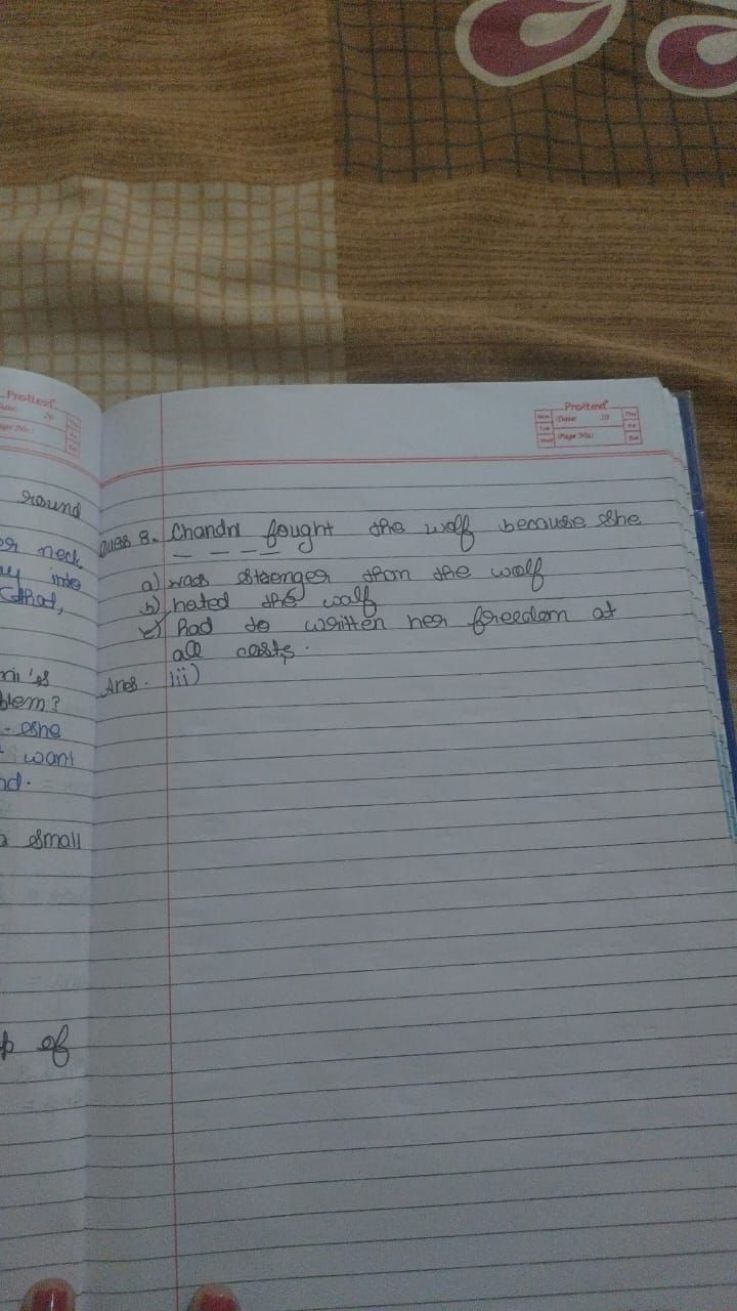 Proltext
Date: 20
Page No:
round
er neck
that,
blem?
she
want
small
of
Proltext
Date: 20
Page No:
Ques 8. Chandni fought the wolf because she
_ _ _ _
a) was stronger than the wolf
b) hated the walf
c) had to written her freedom at
all costs.
Ans. iii)